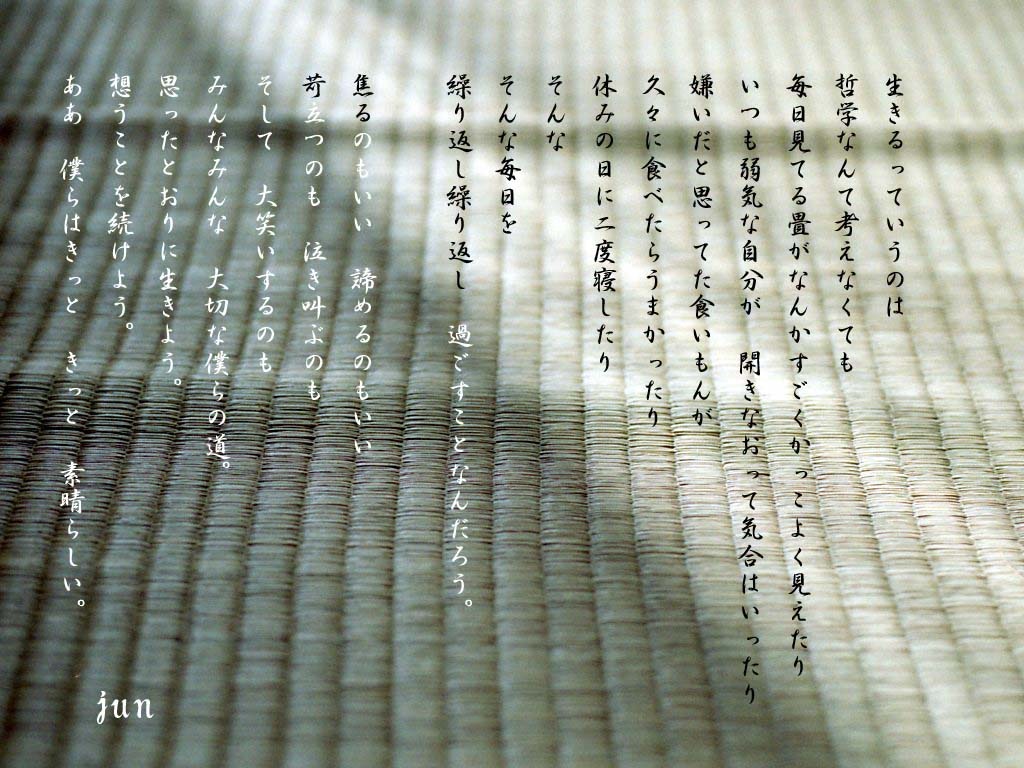 生きるっていうのは
哲学なんて考えなくても
毎日見てる畳がなんかすごくかっこよく見えたり
いつも弱気な自分が　開きなおって気合はいったり
嫌いだと思ってた食いもんが
久々に食べたらうまかったり
休みの日に二度寝したり
そんな
そんな毎日を
繰り返し繰り返し　過ごすことなんだろう。
焦るのもいい　諦めるのもいい
苛立つのも　泣き叫ぶのも
そして　大笑いするのも
みんなみんな　大切な僕らの道。
思ったとおりに生きよう。
想うことを続けよう。
ああ　僕らはきっと　きっと　素晴らしい。
jun